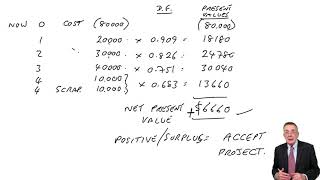 D.F. PRESENT
VALUES
NOW 0 COST (80000) (80,000)
1 20000 × 0.909 = 18180
2 30000 × 0.826 = 24780
3 40000 × 0.751 = 30040
4 10,000
4 SCRAP 10,000 × 0.683 = 13660
NET PRESENT + $6660
VALUE
POSITIVE/SURPLUS = ACCEPT
PROJECT.